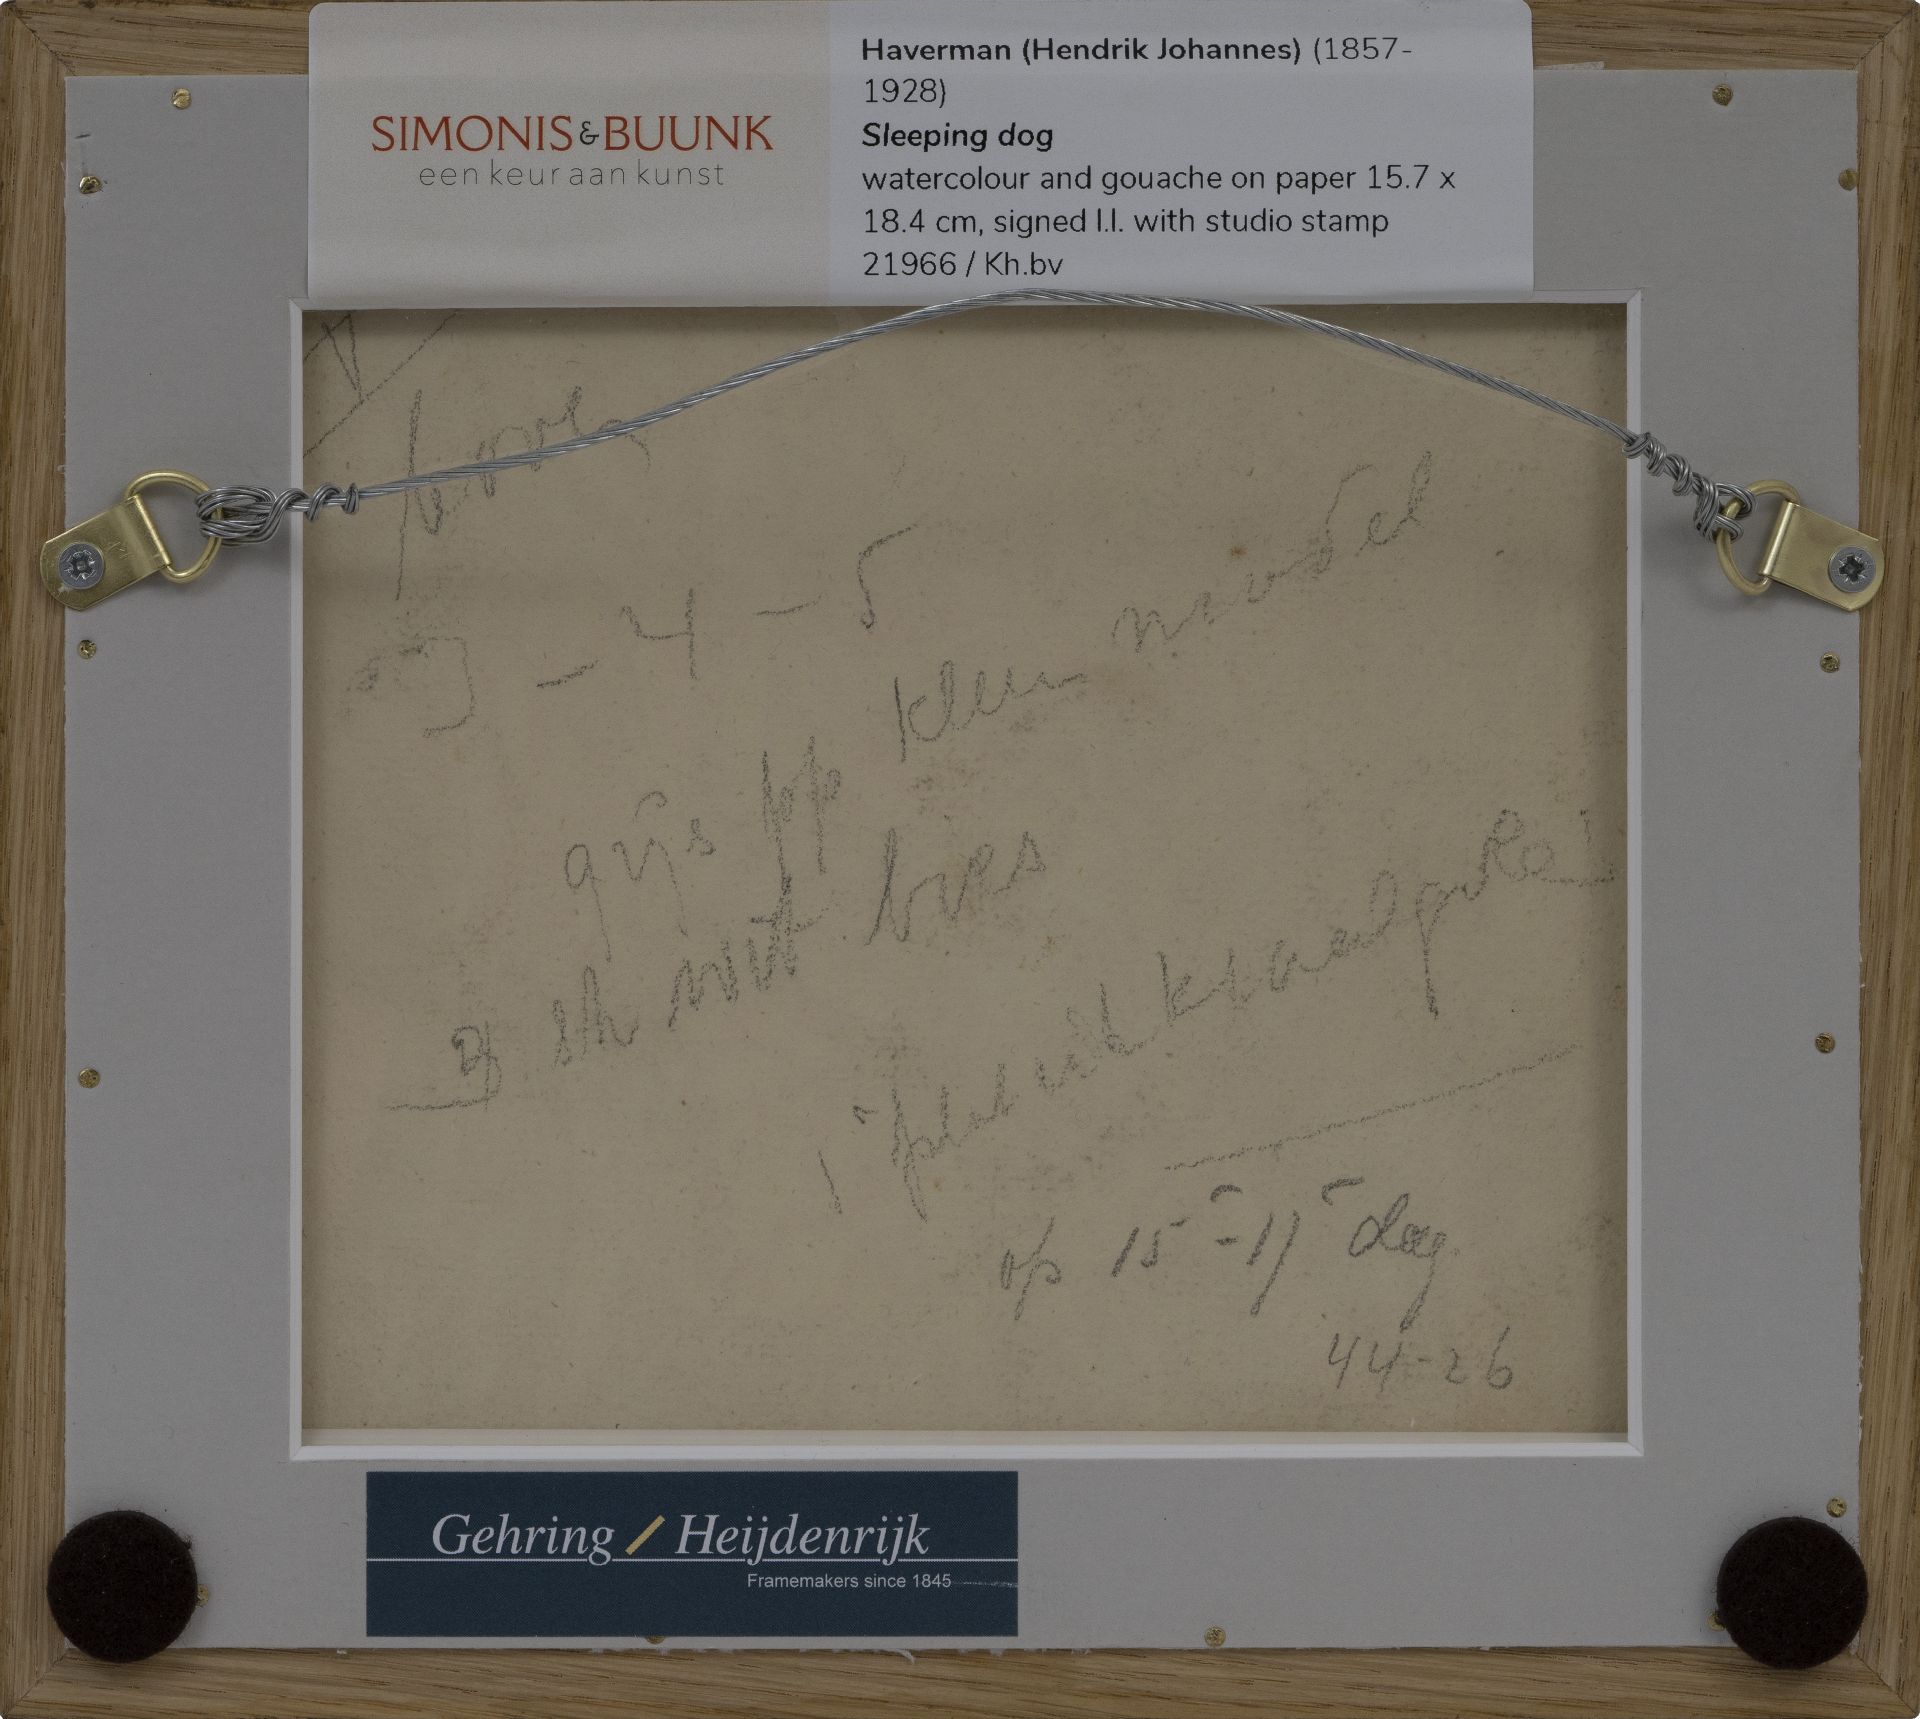 SIMONIS & BUUNK
een keur aan kunst
Haverman (Hendrik Johannes) (1857-
1928)
Sleeping dog
watercolour and gouache on paper 15.7 x
18.4 cm, signed l.l. with studio stamp
21966 / Kh.bv
3 - 4 - 5
grijs op klein model
of sth wit
op 15 - 17 dag
44-26
Gehring / Heijdenrijk
Framemakers since 1845